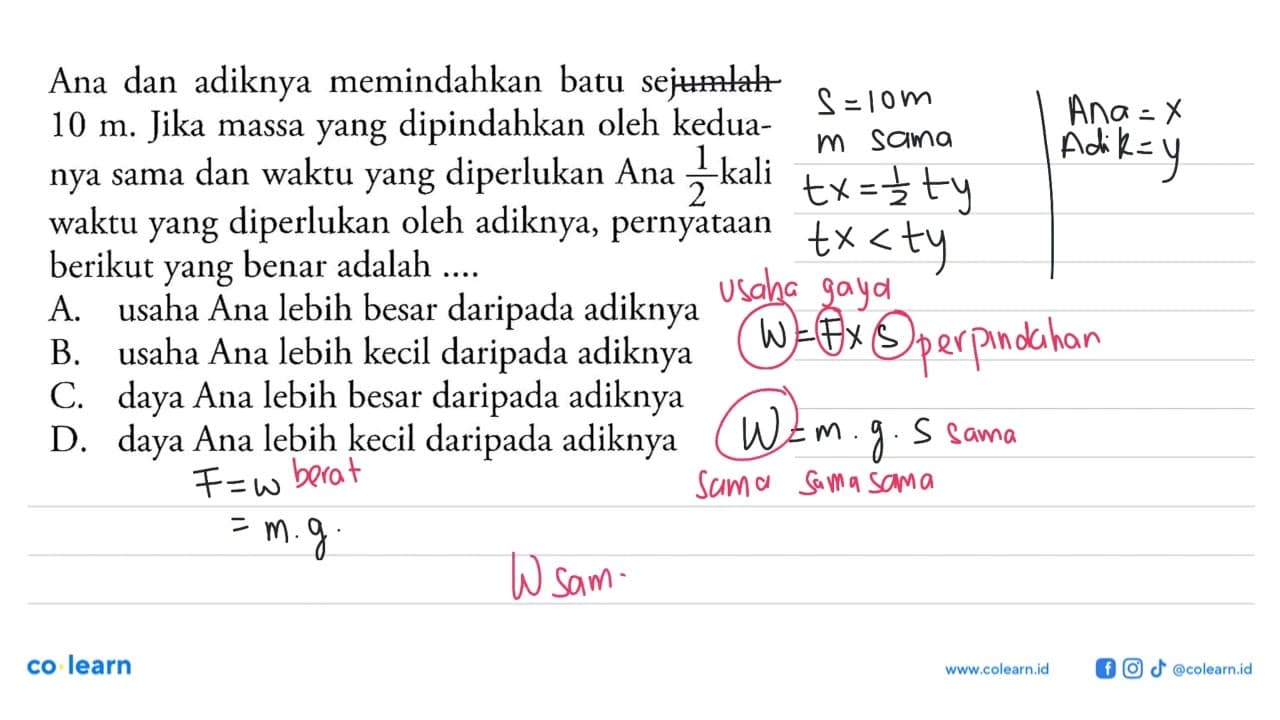 Ana dan adiknya memindahkan batu sejumlah
10 m. Jika massa yang dipindahkan oleh kedua-
nya sama dan waktu yang diperlukan Ana 1/2 kali
waktu yang diperlukan oleh adiknya, pernyataan
berikut yang benar adalah ....
A. usaha Ana lebih besar daripada adiknya
B. usaha Ana lebih kecil daripada adiknya
C. daya Ana lebih besar daripada adiknya
D. daya Ana lebih kecil daripada adiknya
F = w berat
= m.g.
S = 10 m
m sama
tx = 1/2 ty
tx < ty
Ana = x
Adik = y
usaha gaya
W = F x S perpindahan
W = m . g . S sama
sama sama sama
W sam.
co·learn
www.colearn.id @colearn.id